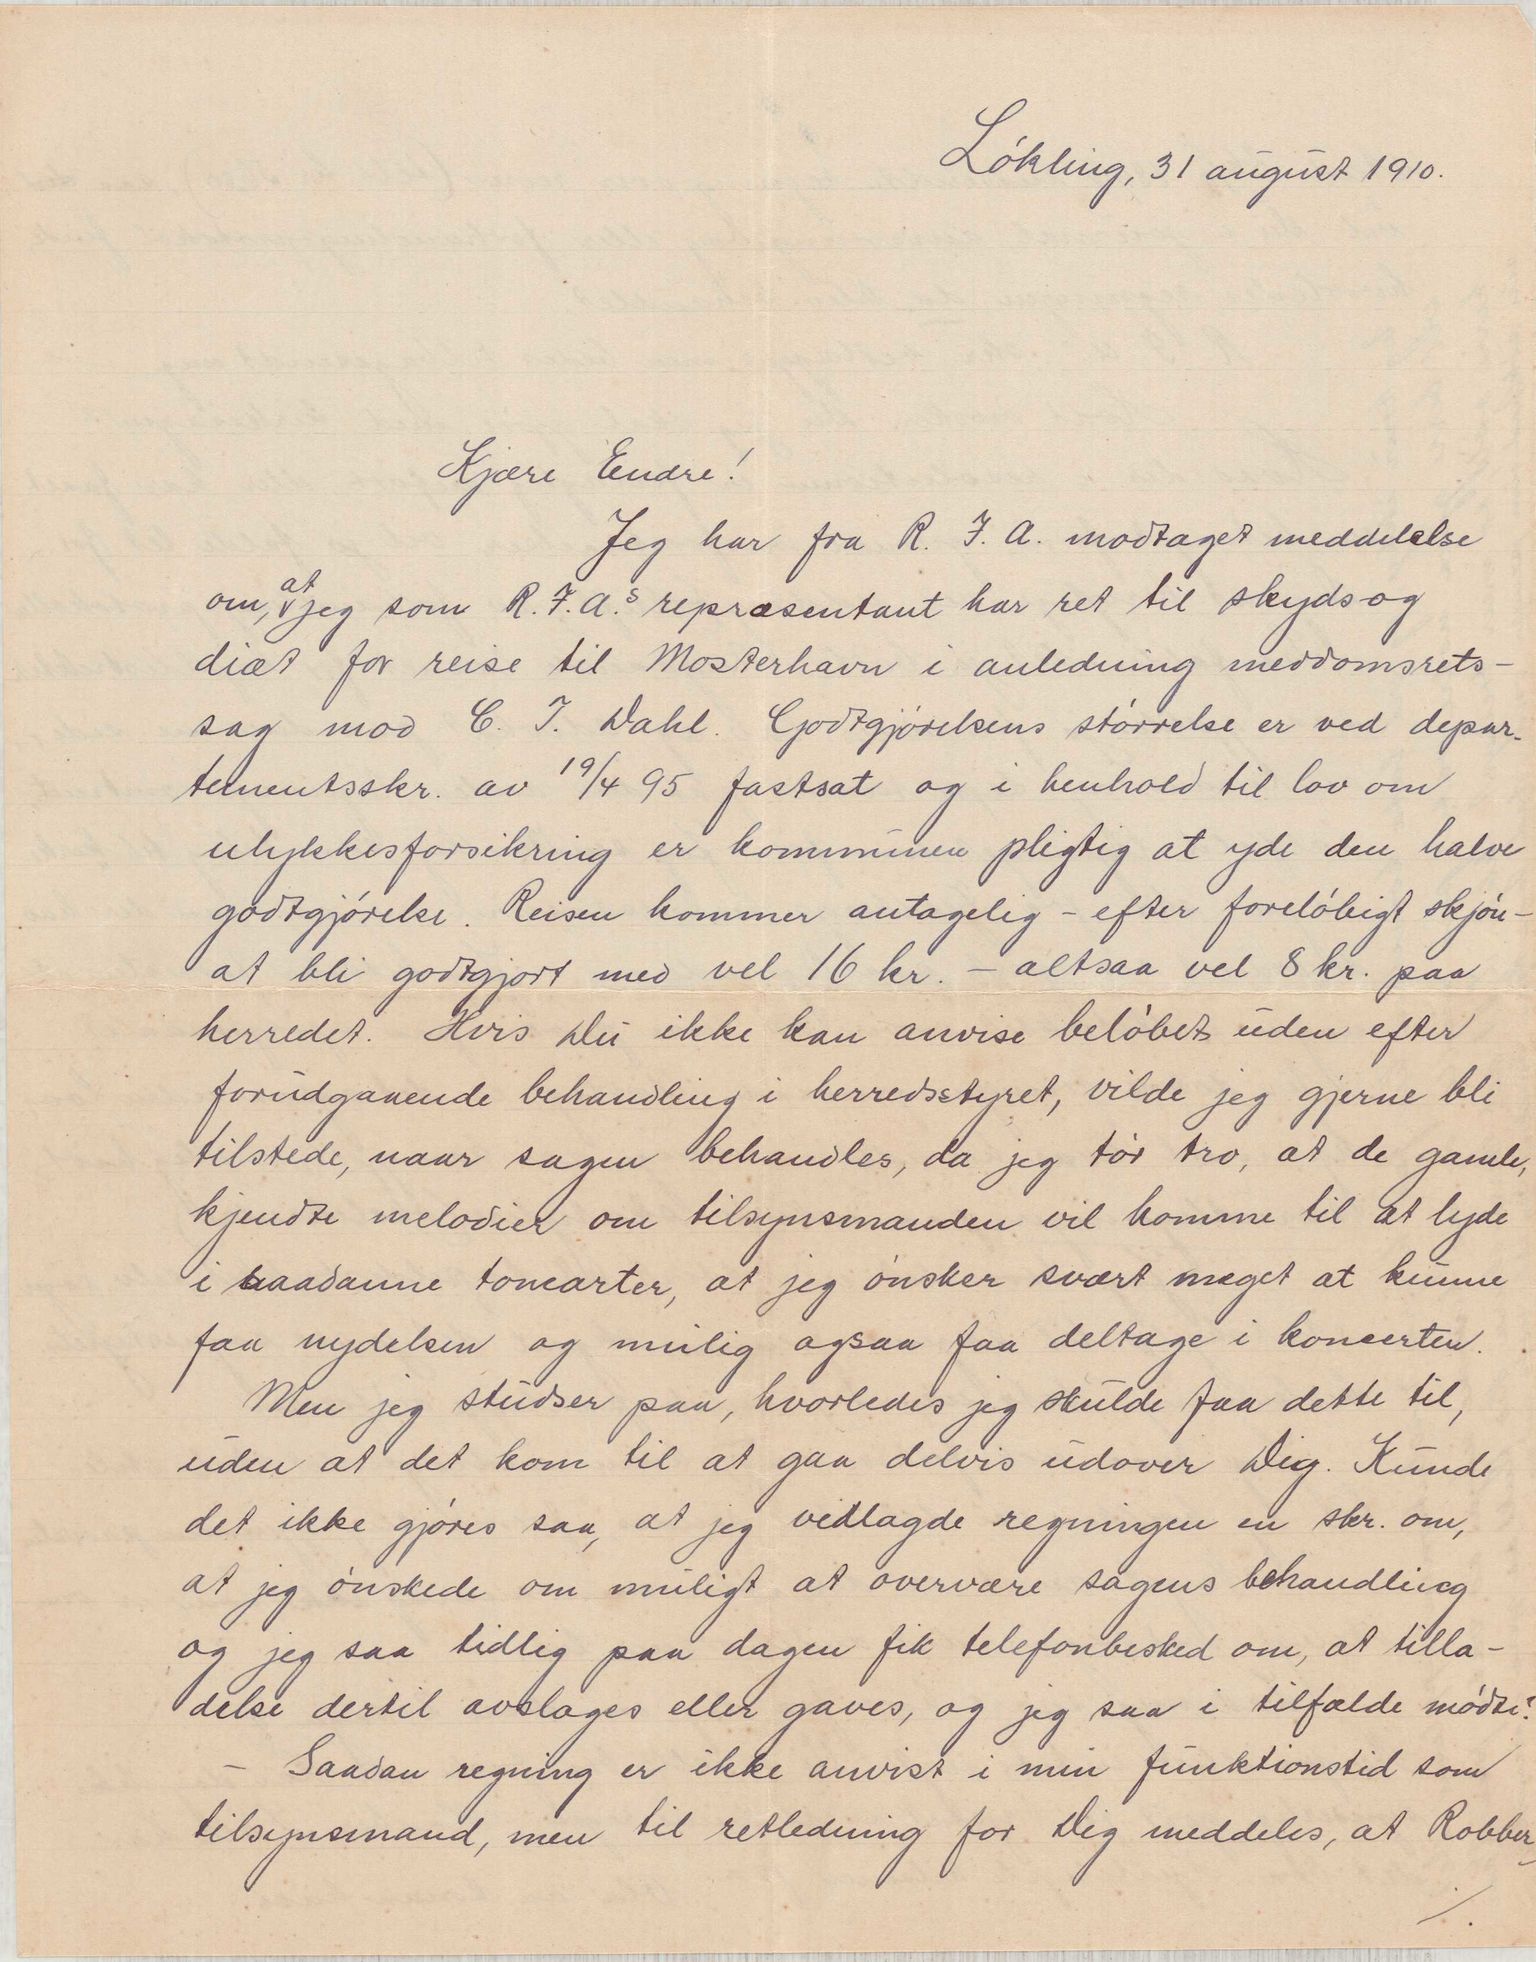 Lókling, 31 august 1910.
Kjære Endre!
Jeg har fra R. F. A. modtaget meddelelse
om, at jeg som R. F. A.s repræsentant har ret til skyds og
diæt for reise til Mosterhavn i anledning meddomsrets-
sag mod C. T. Dahl. Godtgjórelsens stórrelse er ved depar-
tementsskr. av 19/4 95 fastsat og i henhold til lov om
ulykkesforsikring er kommunen pligtig at yde den halve
godtgjórelse. Reisen kommer antagelig - efter forelóbigt skjón -
at bli godtgjort med vel 16 kr. - altsaa vel 8 kr. paa
herredet. Hvis Du ikke kan anvise belóbet uden efter
forudgaaende behandling i herredsstyret, vilde jeg gjerne bli
tilstede, naar sagen behandles, da jeg tór tro, at de gamle,
kjendte melodier om tilsynsmanden vil komme til at lyde
i saadanne tonearter, at jeg ónsker svært meget at kunne
faa nydelsen og mulig ogsaa faa deltage i koncerten.
Men jeg studser paa, hvorledes jeg skulde faa dette til,
uden at det kom til at gaa delvis udover Dig. Kunde
det ikke gjóres saa, at jeg vedlagde regningen en skr. om,
at jeg ónskede om muligt at overvære sagens behandling
og jeg saa tidlig paa dagen fik telefonbesked om, at tilla-
delse dertil avslages eller gaves, og jeg saa i tilfælde módte?
- Saadan regning er ikke anvist i min funktionstid som
tilsynsmand, men til retledning for Dig meddeles, at Robber-
./.